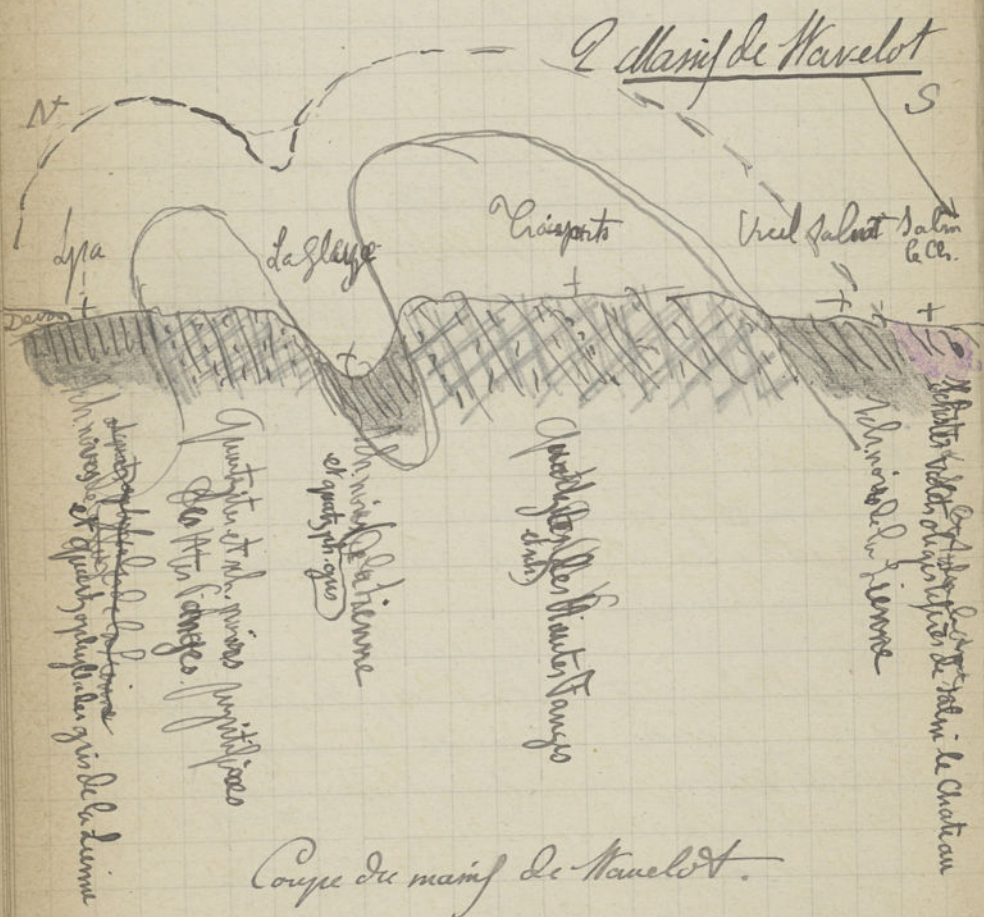 2 Massif de Stavelot
N S
Spa La Gleize Troisponts Viel Salm Salm
le Ch.
Devon
Sch. noirs
et quartzophyllades gris de la Lienne
Quartzite et sch. noirs pyritifères
des Htes Fanges.
Sch. noirs de la Lienne
et quartzph. gris
Quartzites des Hautes Fanges
et sch.
Sch. noirs de la Lienne
Schistes violets oligistifères de Salm le Chateau
Coupe du massif de Stavelot.